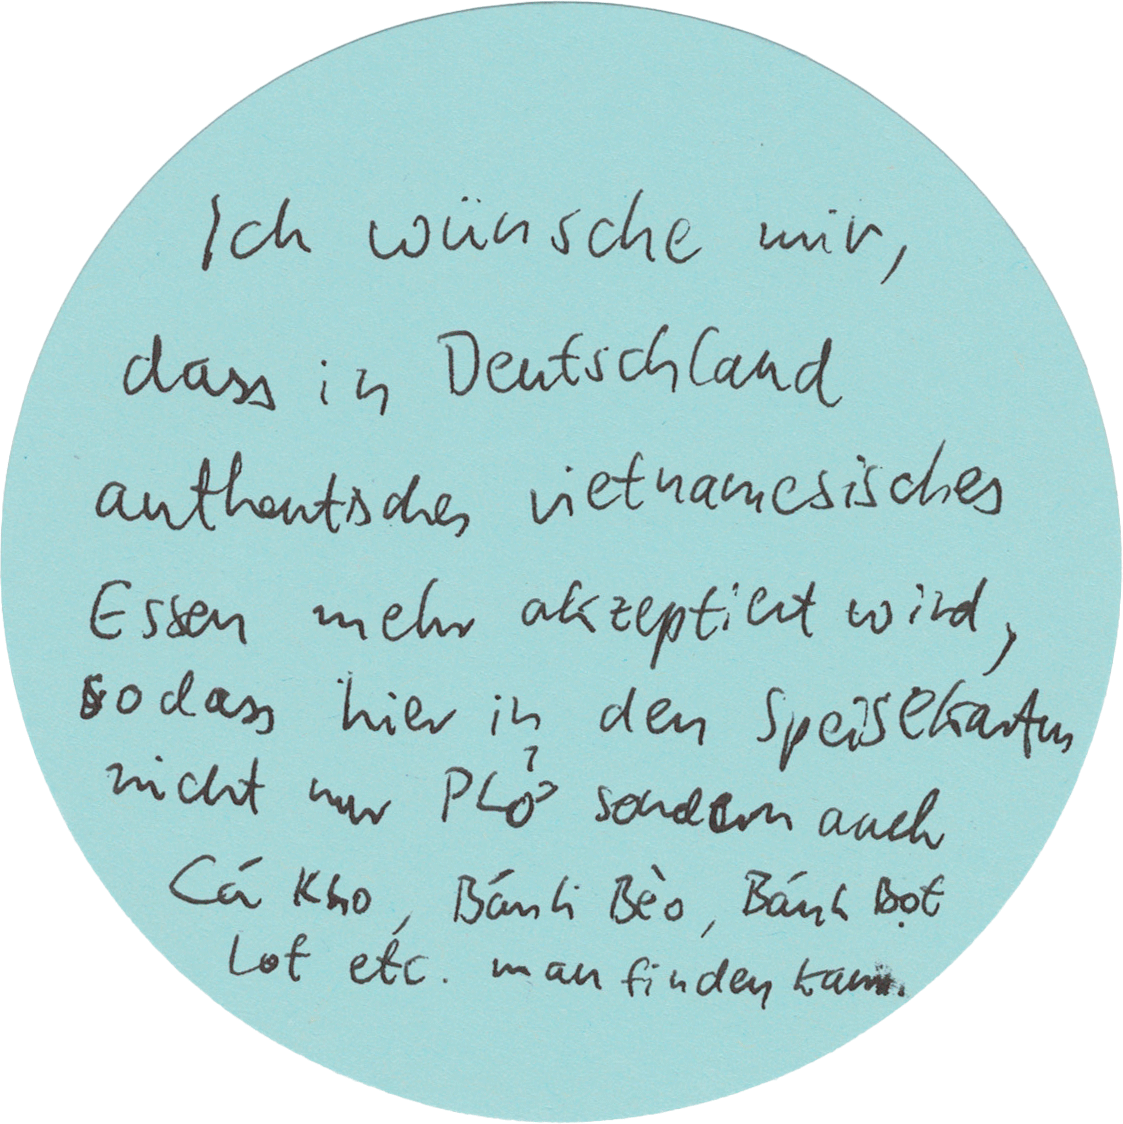 Ich wünsche mir,
dass in Deutschland
authentisches vietnamesisches
Essen mehr akzeptiert wird,
sodass hier in den Speisekarten
nicht nur Phở sondern auch
Cá Kho, Bánh Bèo, Bánh Bọt
Lot etc. man finden kann.